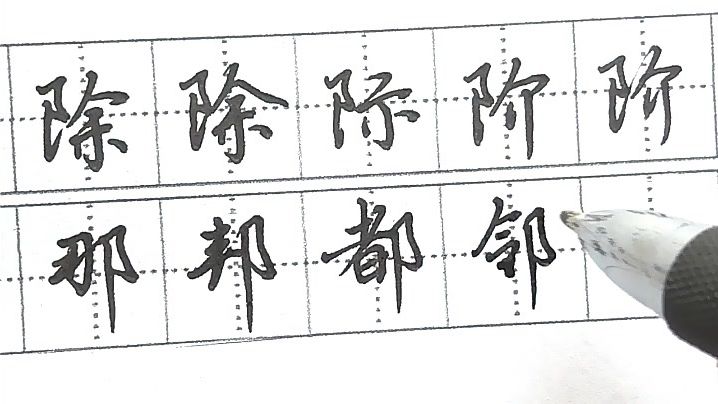 除除际阶阶
那邦都邻